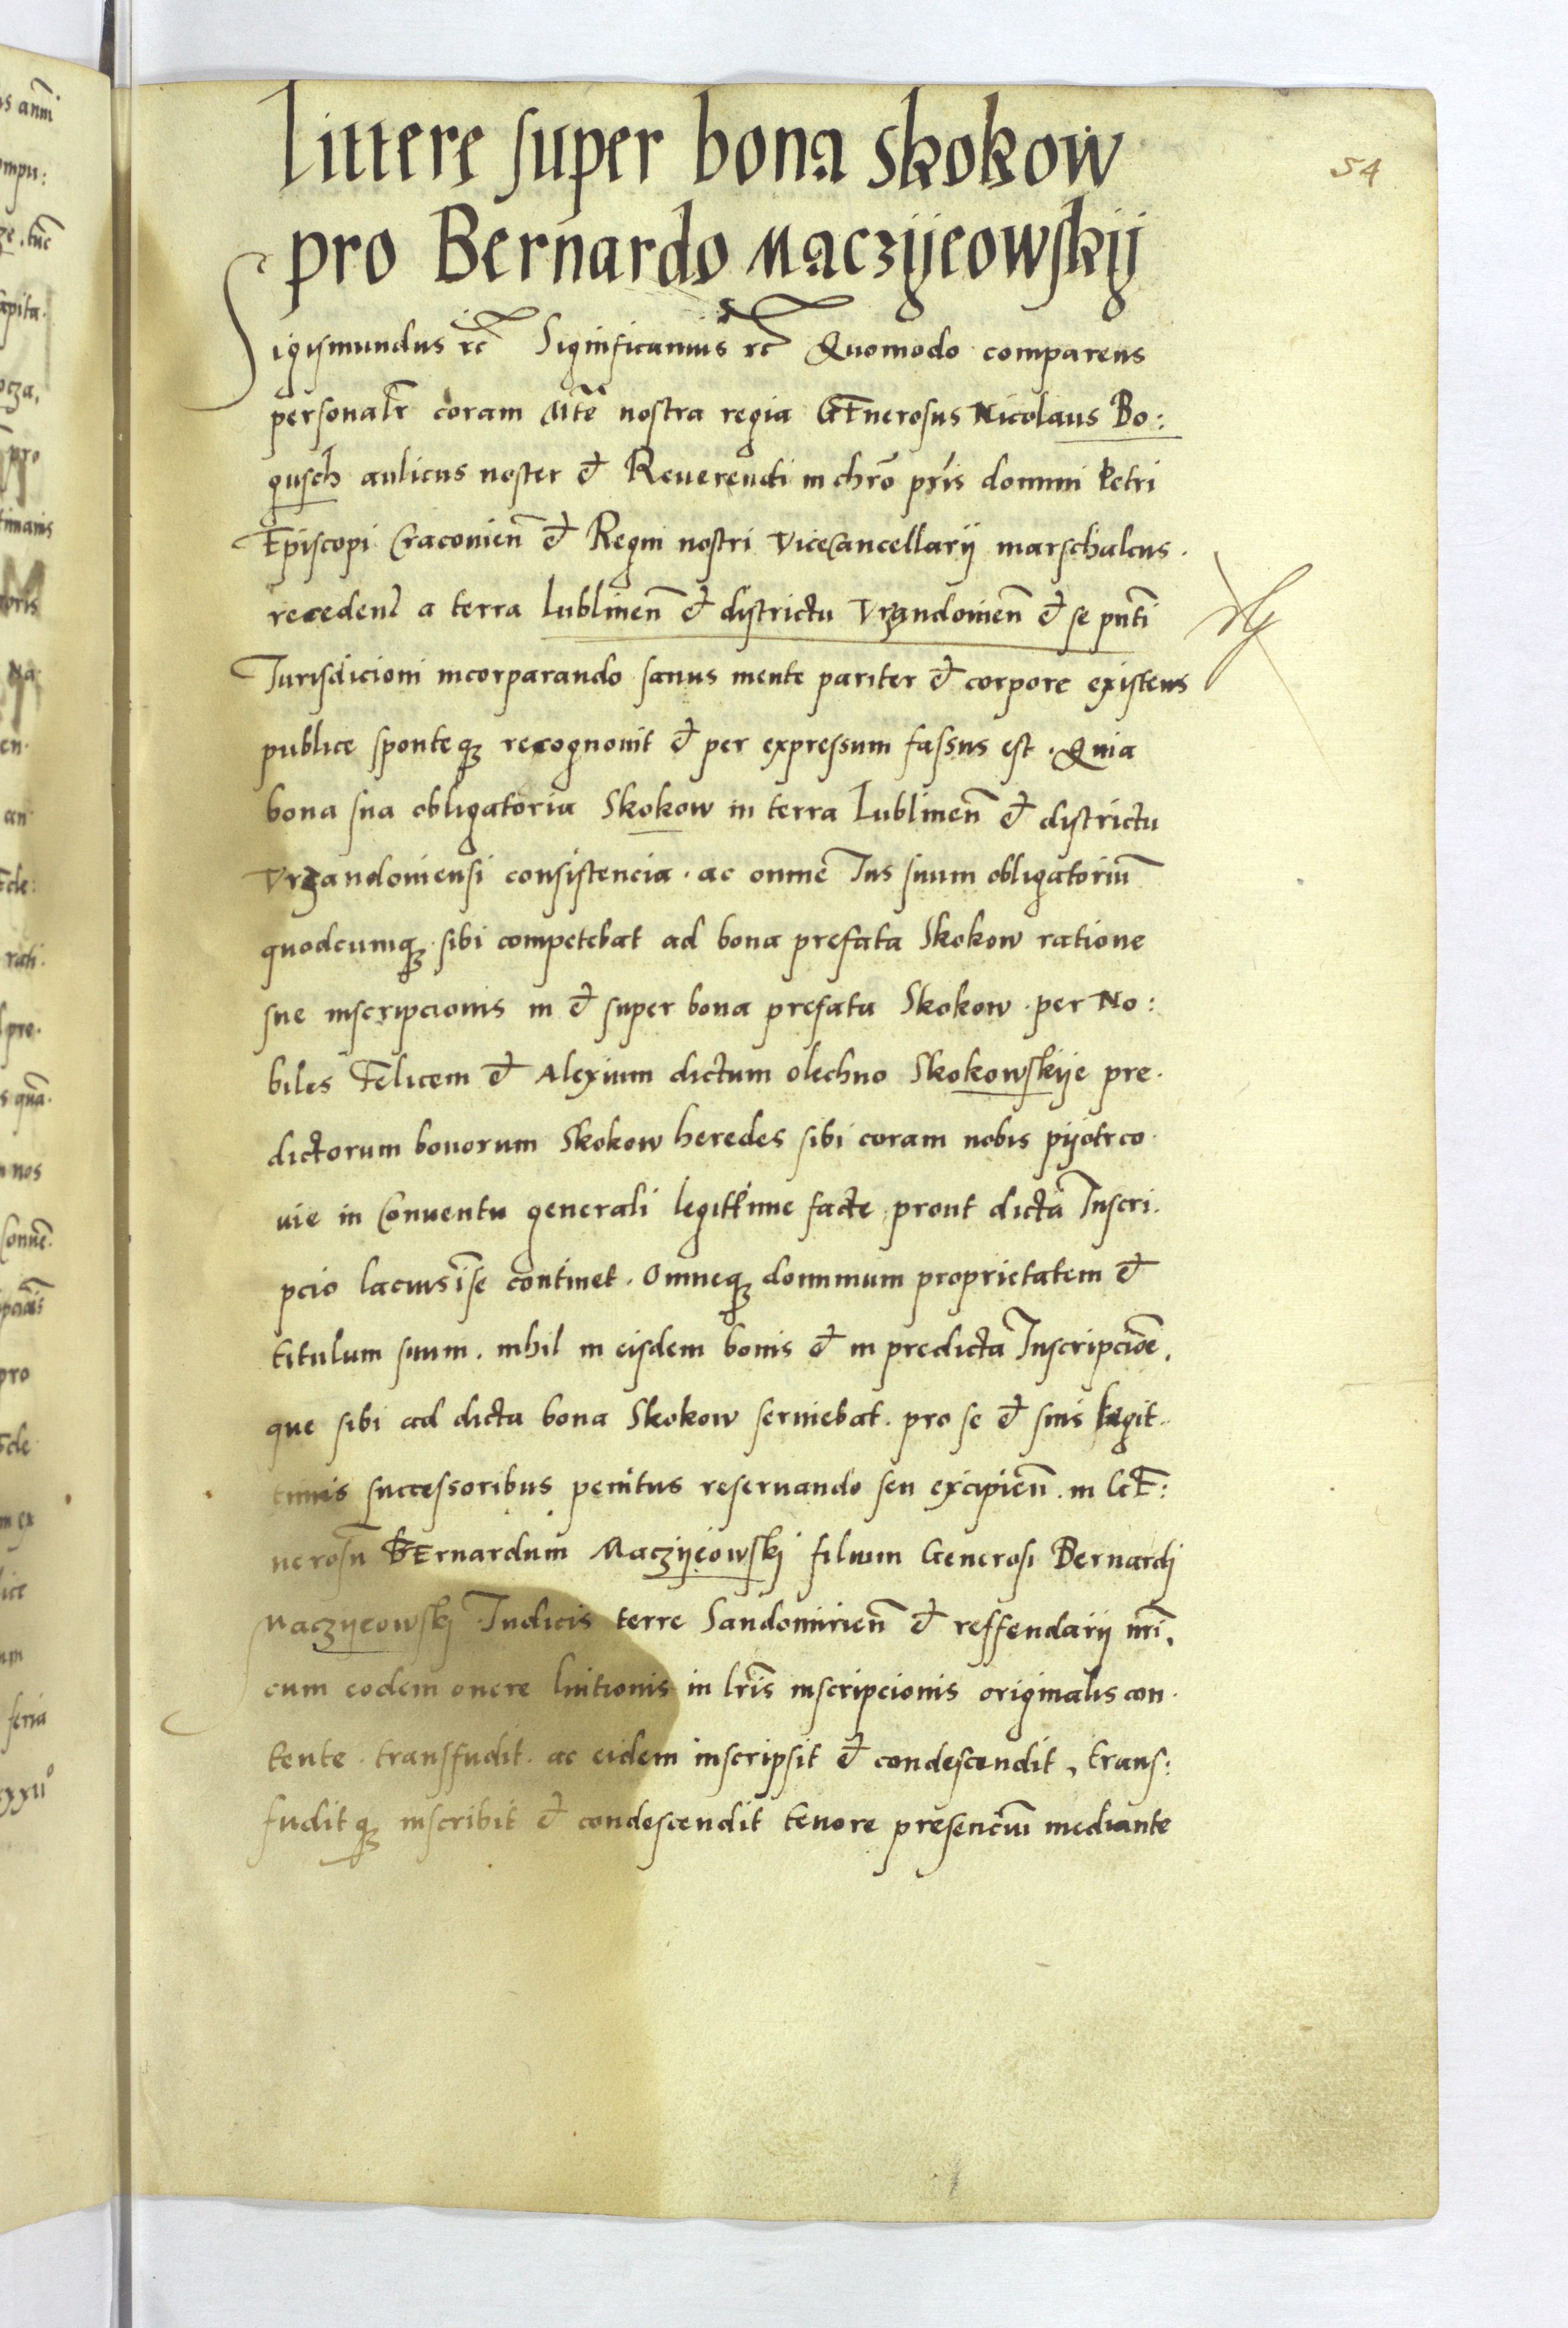 54
littere super bona Skokow
pro Bernardo Maczÿeowskÿ
Sigismundus rc̃ Significamus rc̃ Quomodo comparens
personalr̃ coram Mtẽ nostra regia GEnerosus Nicolaus Bo:
gusch aulicus noster et Reuerendi in chrõ pr̃is domini Petri
Episcopi Cracovien̄ et Regni nostri Vicecancellarÿ marschalcus.
recedenḋ a terra lublinen̄ et districtu Vrzandouien̄ et se pn̄ti
Jurisdicioni incorparando sanus mente pariter et corpore existens
publice sponteqꝫ recognouit et per expressum fassus est. Quia
bona sua obligatoria Skokow in terra Lublinen̄ et districtu
Vrzandouiensi consistencia. ac omne Jus suum obligatoriū
quodcumqꝫ sibi competebat ad bona prefata Skokow ratione
sue inscripcionis in et super bona prefata Skokow. per No:
biles Felicem et Alexium dictum olechno Skokowskÿe pre.
dictorum bonorum Skokow heredes sibi coram nobis pÿotrco.
uie in Conuentu generali legittime facte prout dicta Inscri.
pcio lacius ī se continet. Omneqꝫ dominium proprietatem et
titulum suum. nihil in eisdem bonis et in predicta Inscripciōe.
que sibi ad dicta bona Skokow seruiebat. pro se et suis legit.
timis successoribus penitus reseruando seu excipien̄. in GE:
nerosū BErnardum Maczÿeowskj filium Generosi Bernardj
Maczÿeowskj Judicis terre Sandomirien̄ et reffendarÿ nr̄i,
cum eodem onere luitionis in lr̄is inscripcionis originalis con.
tente. transfudit. ac eidem inscripsit et condescendit, trans:
fuditqꝫ inscribit et condescendit tenore presenciū mediante